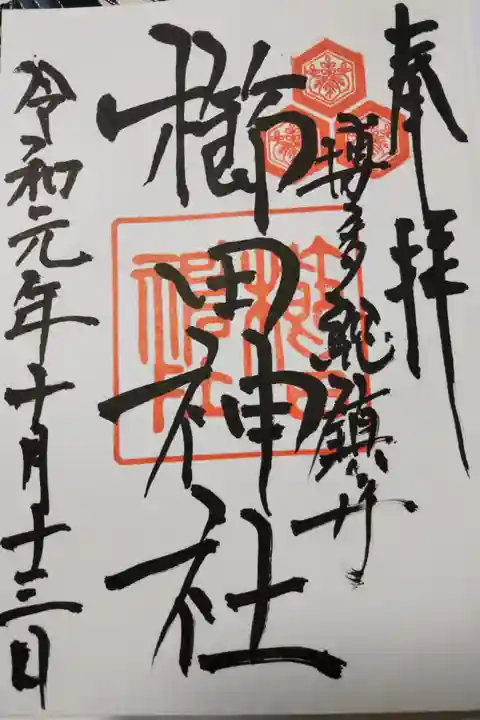 奉拝
博多総鎮守
櫛田神社
令和元年十月十三日